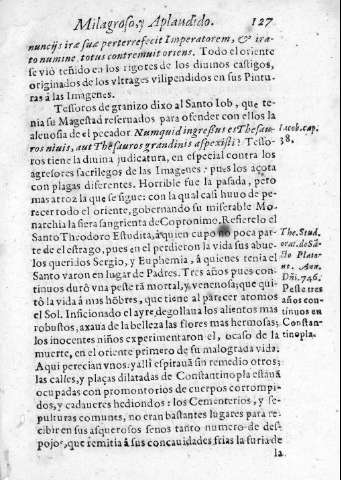 Milagroso, y Aplaudido. 127
nuncijs iræ suæ perterrefecit Imperatorem, & ira-
to numine, totus contremuit oriens. Todo el oriente
se viò teñido en los rigores de los diuinos castigos,
originados de los vltrages vilipendidos en sus Pintu
ras à las Imagenes.
Tessoros de granizo dixo al Santo Iob, que te-
nia su Magestad reseruados para ofender con ellos la
aleuosa de el pecador Numquid ingressus es Thesau-
ros niuis, aut Thesauros grandinis aspexisti? Tesso-
ros tiene la diuina judicatura, en especial contra los
agresores sacrilegos de las Imagenes: pues los açota
con plagas diferentes. Horrible fue la pasada, pero
mas atroz la que se sigue: con la qual casi huuo de pe-
recer todo el oriente, gobernando su miserable Mo-
narchia la fiera sangrienta de Copronimo. Refierelo el
Santo Theodoro Estudita, à quien cupo no poca par-
te de el estrago, pues en el perdieron la vida sus abue
los queridos Sergio, y Euphemia, à quienes tenia el
Santo varon en lugar de Padres. Tres años pues con-
tinuos durò vna peste tã mortal, y venenosa; que qui-
tò la vida à mas hõbres, que tiene al parecer atomos
el Sol. Inficionado el ayre, degollaua los alientos mas
robustos, axaua de la belleza las flores mas hermosas;
los inocentes niños experimentaron el, ocaso de la
muerte, en el oriente primero de su malograda vida.
Aqui perecian vnos: y alli espirauã sin remedio otros;
las calles, y plaças dilatadas de Constantinopla estauã
ocupadas con promontorios de cuerpos cortompi-
dos, y cadaueres hediondos: los Cementerios, y se-
pulturas comunes, no eran bastantes lugares para re-
cibir en sus asquerosos senos tanto numero de des-
pojos, que remitia à sus concauidades frias la furia de
la
Iacob. cap.
38.
The. Stud.
orat. de Sã-
to Plater
ne. Ann.
Dñi. 746.
Peste tres
años con-
tinuos en
Constan-
tinopla.